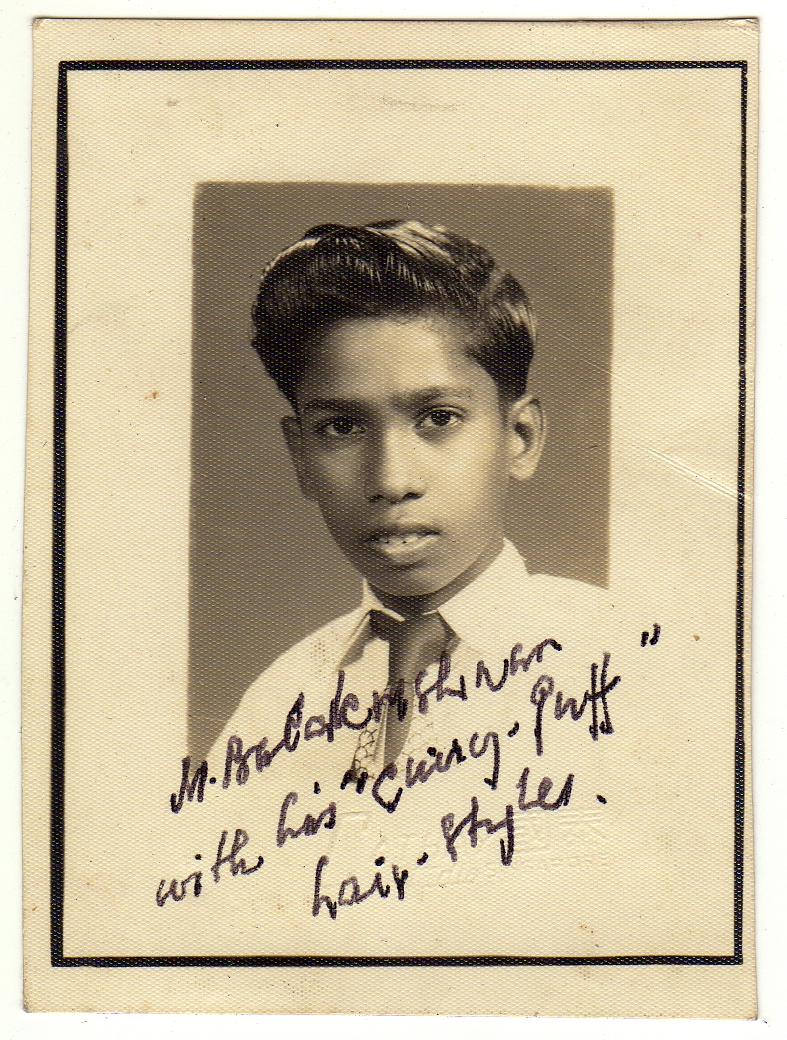 M. Balakrishnan
with his "Currey-Puff"
hair-styles.